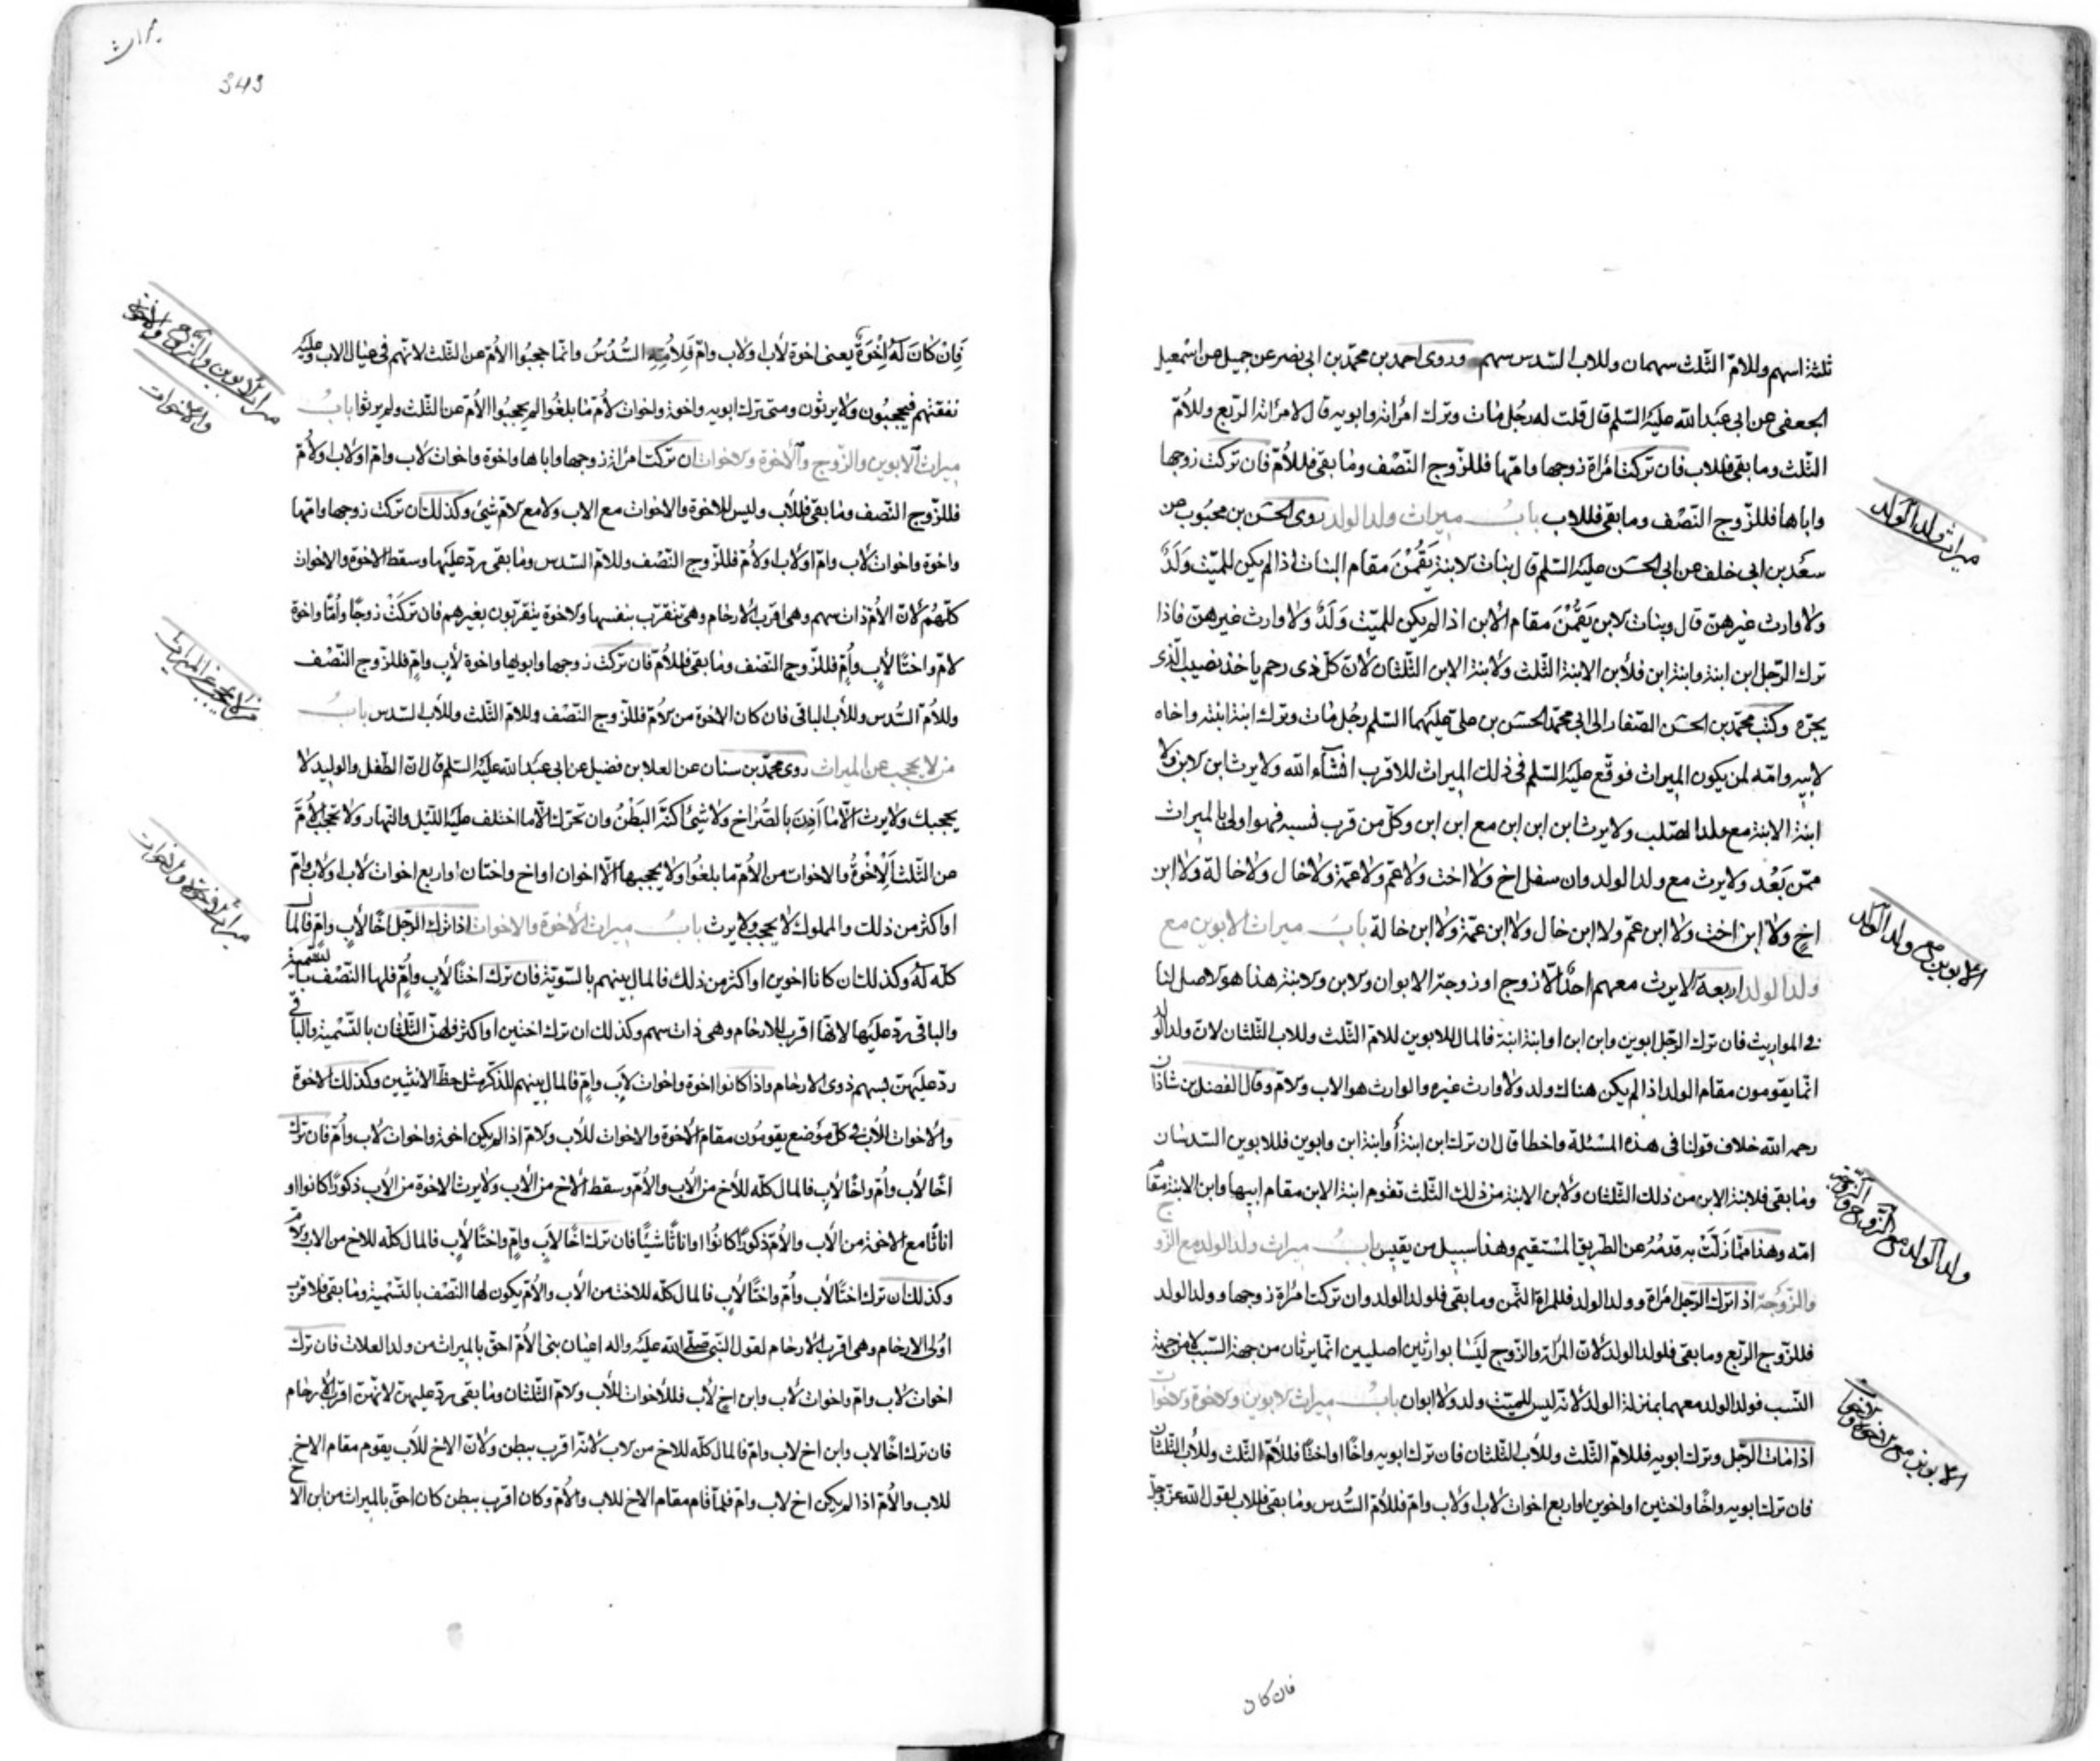 ثلثة اسهم وللامّ الثّلث سهمان وللاب السّدس سهم وروى احمد بن محمّد بن ابى نصر عن جميل عن اسمعيل
الجعفى عن ابى عبد الله عليه السّلم قال قلت له رجل مات وترك امراته وابويه قال لامراته الرّبع وللامّ
الثّلث وما بقى فللاب فان تركت امراة زوجها وامّها فللزّوج النّصف وما بقى فللامّ فان تركت زوجها
واباها فللزّوج النّصف وما بقى فللاب باب ميراث ولد الولد روى الحسن بن محبوب عن
سعد بن ابى خلف عن ابى الحسن عليه السّلم قال بنات الابنة يقمن مقام البنات اذا لم يكن للميّت ولد
ولا وارث غيرهنّ قال وبنات الابن يقمن مقام الابن اذا لم يكن للميّت ولد ولا وارث غيرهنّ فاذا
ترك الرّجل ابن ابنة وابنة ابن فلابن الابنة الثّلث ولابنة الابن الثّلثان لانّ كلّ ذى رحم ياخذ نصيب الّذى
يجرّه وكتب محمّد بن الحسن الصّفار الى ابى محمّد الحسن بن على عليهما السّلم رجل مات وترك ابنة ابنته واخاه
لابيه وامّه لمن يكون الميراث فوقّع عليه السّلم فى ذلك الميراث للاقرب انشاء الله ولا يرث ابن الابن ولا
ابنة الابنة مع ولد الصّلب ولا يرث ابن ابن ابن مع ابن ابن وكلّ من قرب نسبه فهو اولى بالميراث
ممّن بعد ولا يرث مع ولد الولد وان سفل اخ ولا اخت ولا عم ولا عمّة ولا خال ولا خالة ولا ابن
اخ ولا ابن اخت ولا ابن عم ولا ابن خال ولا ابن عمّة ولا ابن خالة باب ميراث الابوين مع
ولد الولد اربعة لا يرث معهم احد الّا زوج او زوجة الابوان والابن والابنة هذا هو الاصل لنا
فى المواريث فان ترك الرّجل ابوين وابن ابن او ابنة ابنة فالمال للابوين للامّ الثّلث وللاب الثّلثان لانّ ولد الولد
انّما يقومون مقام الولد اذا لم يكن هناك ولد ولا وارث غيره والوارث هو الاب والامّ وقال الفضل بن شاذان
رحمه الله خلاف قولنا فى هذه المسئلة واخطا قال ان ترك ابن ابنة او ابنة ابن وابوين فللابوين السّدسان
وما بقى فلابنة الابن من ذلك الثّلثان ولابن الابنة من ذلك الثّلث تقوم ابنة الابن مقام ابيها وابن الابنة مقام
امّه وهذا ممّا زلّت به قدمه عن الطريق المستقيم وهذا سبيل من يقيس باب ميراث ولد الولد مع الزّوج
والزّوجة اذا ترك الرّجل امراة وولد الولد فللمراة الثّمن وما بقى فلولد الولد وان تركت امراة زوجها وولد الولد
فللزّوج الرّبع وما بقى فلولد الولد لانّ المراة والزّوج ليسا بوارثين اصليين انّما يرثان من جهة السّبب لا من جهة
النّسب فولد الولد معهما بمنزلة الولد لانّه ليس للميّت ولد ولا ابوان باب ميراث الابوين والاخوة والاخوات
اذا مات الرّجل وترك ابويه فللامّ الثّلث وللاب الثّلثان فان ترك ابويه واخا او اختا فللامّ الثّلث وللاب الثّلثان
فان ترك ابويه واخا واختين او اخوين او اربع اخوات لاب او لاب وامّ فللامّ السّدس وما بقى فللاب لقول الله عزّ وجلّ
ميراث ولد الولد
الابوين مع ولد الولد
ولد الولد مع الزوج والزوجة
الابوين مع الاخوة والاخوات
فان كان
343
فان كان له اخوة يعنى اخوة لاب او لاب وامّ فلامّه السّدس وانّما حجبوا الامّ عن الثّلث لانّهم فى عيال الاب وعليه
نفقتهم فيحجبون ولا يرثون ومتى ترك ابويه واخوة واخوات لامّ ما بلغوا لم يحجبوا الامّ عن الثّلث ولم يرثوا باب
ميراث الابوين والزّوج والاخوة والاخوات ان تركت امراة زوجها واباها واخوة واخوات لاب وامّ او لاب او لامّ
فللزّوج النّصف وما بقى فللاب وليس للاخوة والاخوات مع الاب ولا مع الامّ شئ وكذلك ان تركت زوجها وامّها
واخوة واخوات لاب وامّ او لاب او لامّ فللزّوج النّصف وللامّ السّدس وما بقى ردّ عليها وسقط الاخوة والاخوات
كلّهم لانّ الامّ ذات سهم وهى اقرب الارحام وهى تتقرّب بنفسها والاخوة يتقرّبون بغيرهم فان تركت زوجا وامّا واخوة
لامّ واختا لاب وامّ فللزّوج النّصف وما بقى فللامّ فان تركت زوجها وابويها واخوة لاب وامّ فللزّوج النّصف
وللامّ السّدس وللاب الباقى فان كان الاخوة من الامّ فللزّوج النّصف وللامّ الثّلث وللاب السّدس باب
من لا يحجب عن الميراث روى محمّد بن سنان عن العلا بن فضيل عن ابى عبد الله عليه السّلم قال انّ الطّفل والوليد لا
يحجبك ولا يرث الّا ما اذن بالصّراخ ولا شئ اكنّه البطن وان تحرّك الّا ما اختلف عليه اللّيل والنّهار ولا يحجب الامّ
عن الثّلث الاخوة والاخوات من الامّ ما بلغوا ولا يحجبها الّا اخوان او اخ واختان او اربع اخوات لاب او لاب وامّ
او اكثر من ذلك والمملوك لا يحجب ولا يرث باب ميراث الاخوة والاخوات اذا ترك الرّجل اخا لاب وامّ فالمال
كلّه له وكذلك ان كانا اخوين او اكثر من ذلك فالمال بينهم بالسّوية فان ترك اختا لاب وامّ فلها النّصف بالتّسمية
والباقى ردّ عليها لانّها اقرب الارحام وهى ذات سهم وكذلك ان ترك اختين او اكثر فلهنّ الثّلثان بالتّسمية والباقى
ردّ عليهنّ بسهم ذوى الارحام واذا كانوا اخوة واخوات لاب وامّ فالمال بينهم للذّكر مثل حظّ الانثيين وكذلك الاخوة
والاخوات للاب فى كلّ موضع يقومون مقام الاخوة والاخوات للاب والامّ اذا لم يكن اخوة واخوات لاب وامّ فان ترك
اخا لاب وامّ واخا لاب فالمال كلّه للاخ من الاب والامّ وسقط الاخ من الاب ولا يرث الاخوة من الاب ذكورا كانوا او
اناثا مع الاخوة من الاب والامّ ذكورا كانوا او اناثا شيئا فان ترك اخا لاب وامّ واختا لاب فالمال كلّه للاخ من الاب والامّ
وكذلك ان ترك اختا لاب وامّ واختا لاب فالمال كلّه للاخت من الاب والامّ يكون لها النّصف بالتّسمية وما بقى فلاقرب
اولى الارحام وهى اقرب الارحام لقول النّبى صلّى الله عليه واله اعيان بنى الامّ احقّ بالميراث من ولد العلات فان ترك
اخوات لاب وامّ واخوات لاب وابن اخ لاب فللاخوات للاب والامّ الثّلثان وما بقى ردّ عليهنّ لانّهنّ اقرب الارحام
فان ترك اخا لاب وابن اخ لاب وامّ فالمال كلّه للاخ من الاب لانّه اقرب ببطن ولانّ الاخ للاب يقوم مقام الاخ
للاب والامّ اذا لم يكن اخ لاب وامّ فلمّا قام مقام الاخ للاب والامّ وكان اقرب ببطن كان احقّ بالميراث من ابن الاخ
ميراث الابوين والزوج والاخوة
والاخوات
من لا يحجب عن الميراث
ميراث الاخوة والاخوات